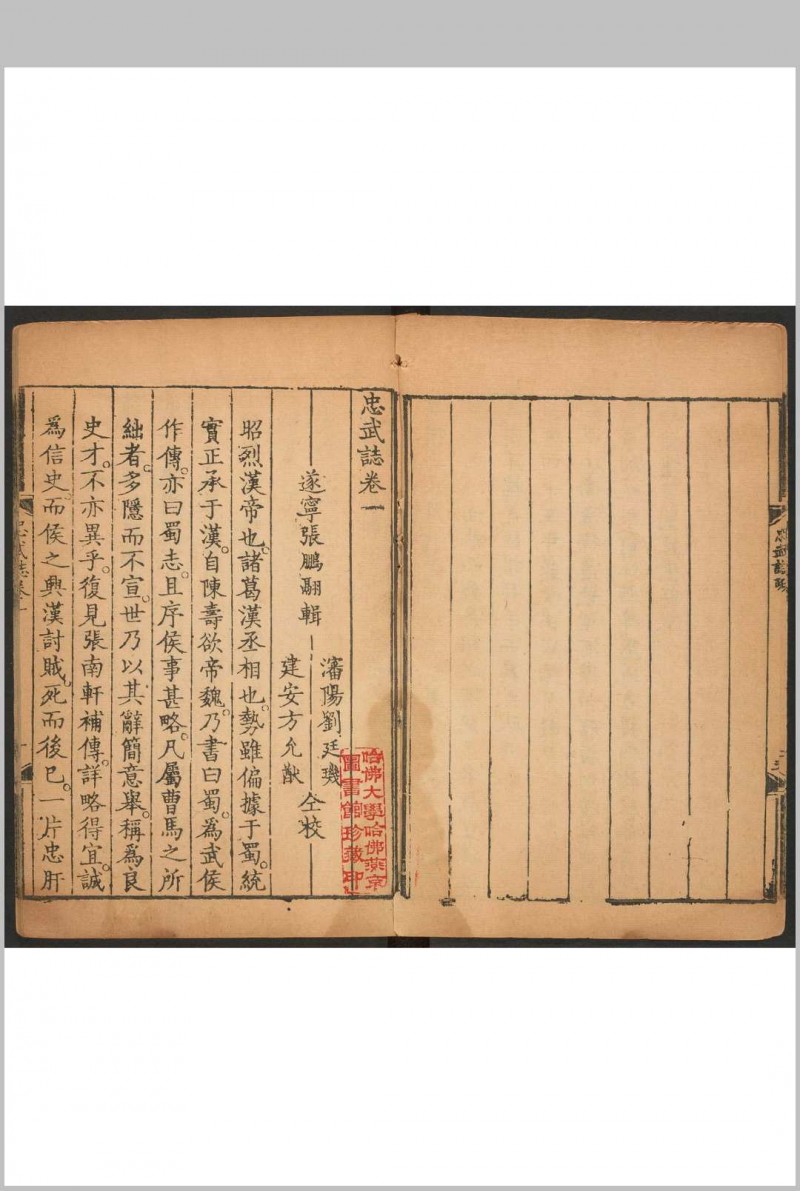 忠武誌卷一
遂寧張鵬翮輯
瀋陽劉廷璣
建安方允猷
仝校
昭烈漢帝也。諸葛漢丞相也。勢雖偏據于蜀。統
實正承于漢。自陳壽欲帝魏。乃書曰蜀。為武侯
作傳。亦曰蜀志。且序侯事甚略。凡屬曹馬之所
絀者。多隱而不宣。世乃以其辭簡意舉。稱為良
史才。不亦異乎。復見張南軒補傳。詳略得宜。誠
為信史。而侯之興漢討賊。死而後已。一片忠肝
哈佛大學哈佛燕京
圖書館珍藏印